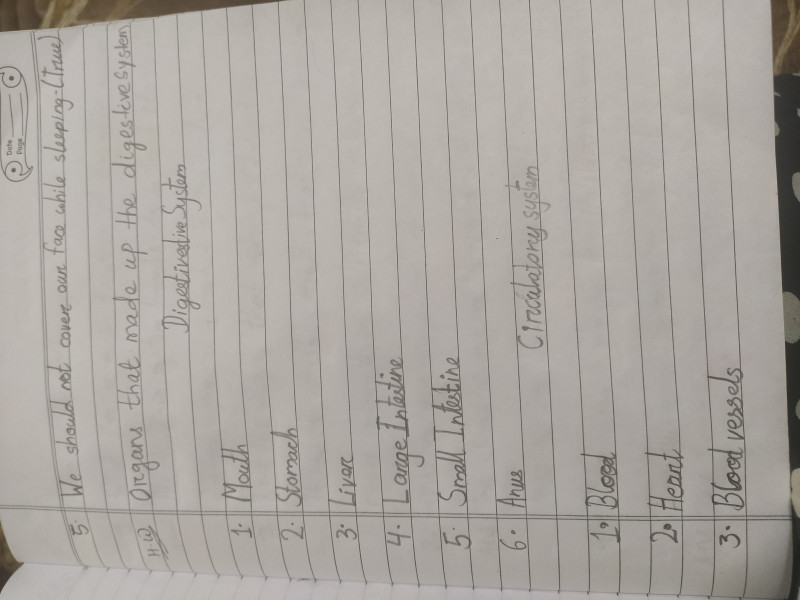 Date
Page
5. We should not cover our face while sleeping-(True)
H.W Organs that made up the digestive system
Digestivestive System
1. Mouth
2. Stomach
3. Liver
4. Large Intestine
5. Small Intestine
6. Anus
Circulatory system
1. Blood
2. Heart
3. Blood vessels